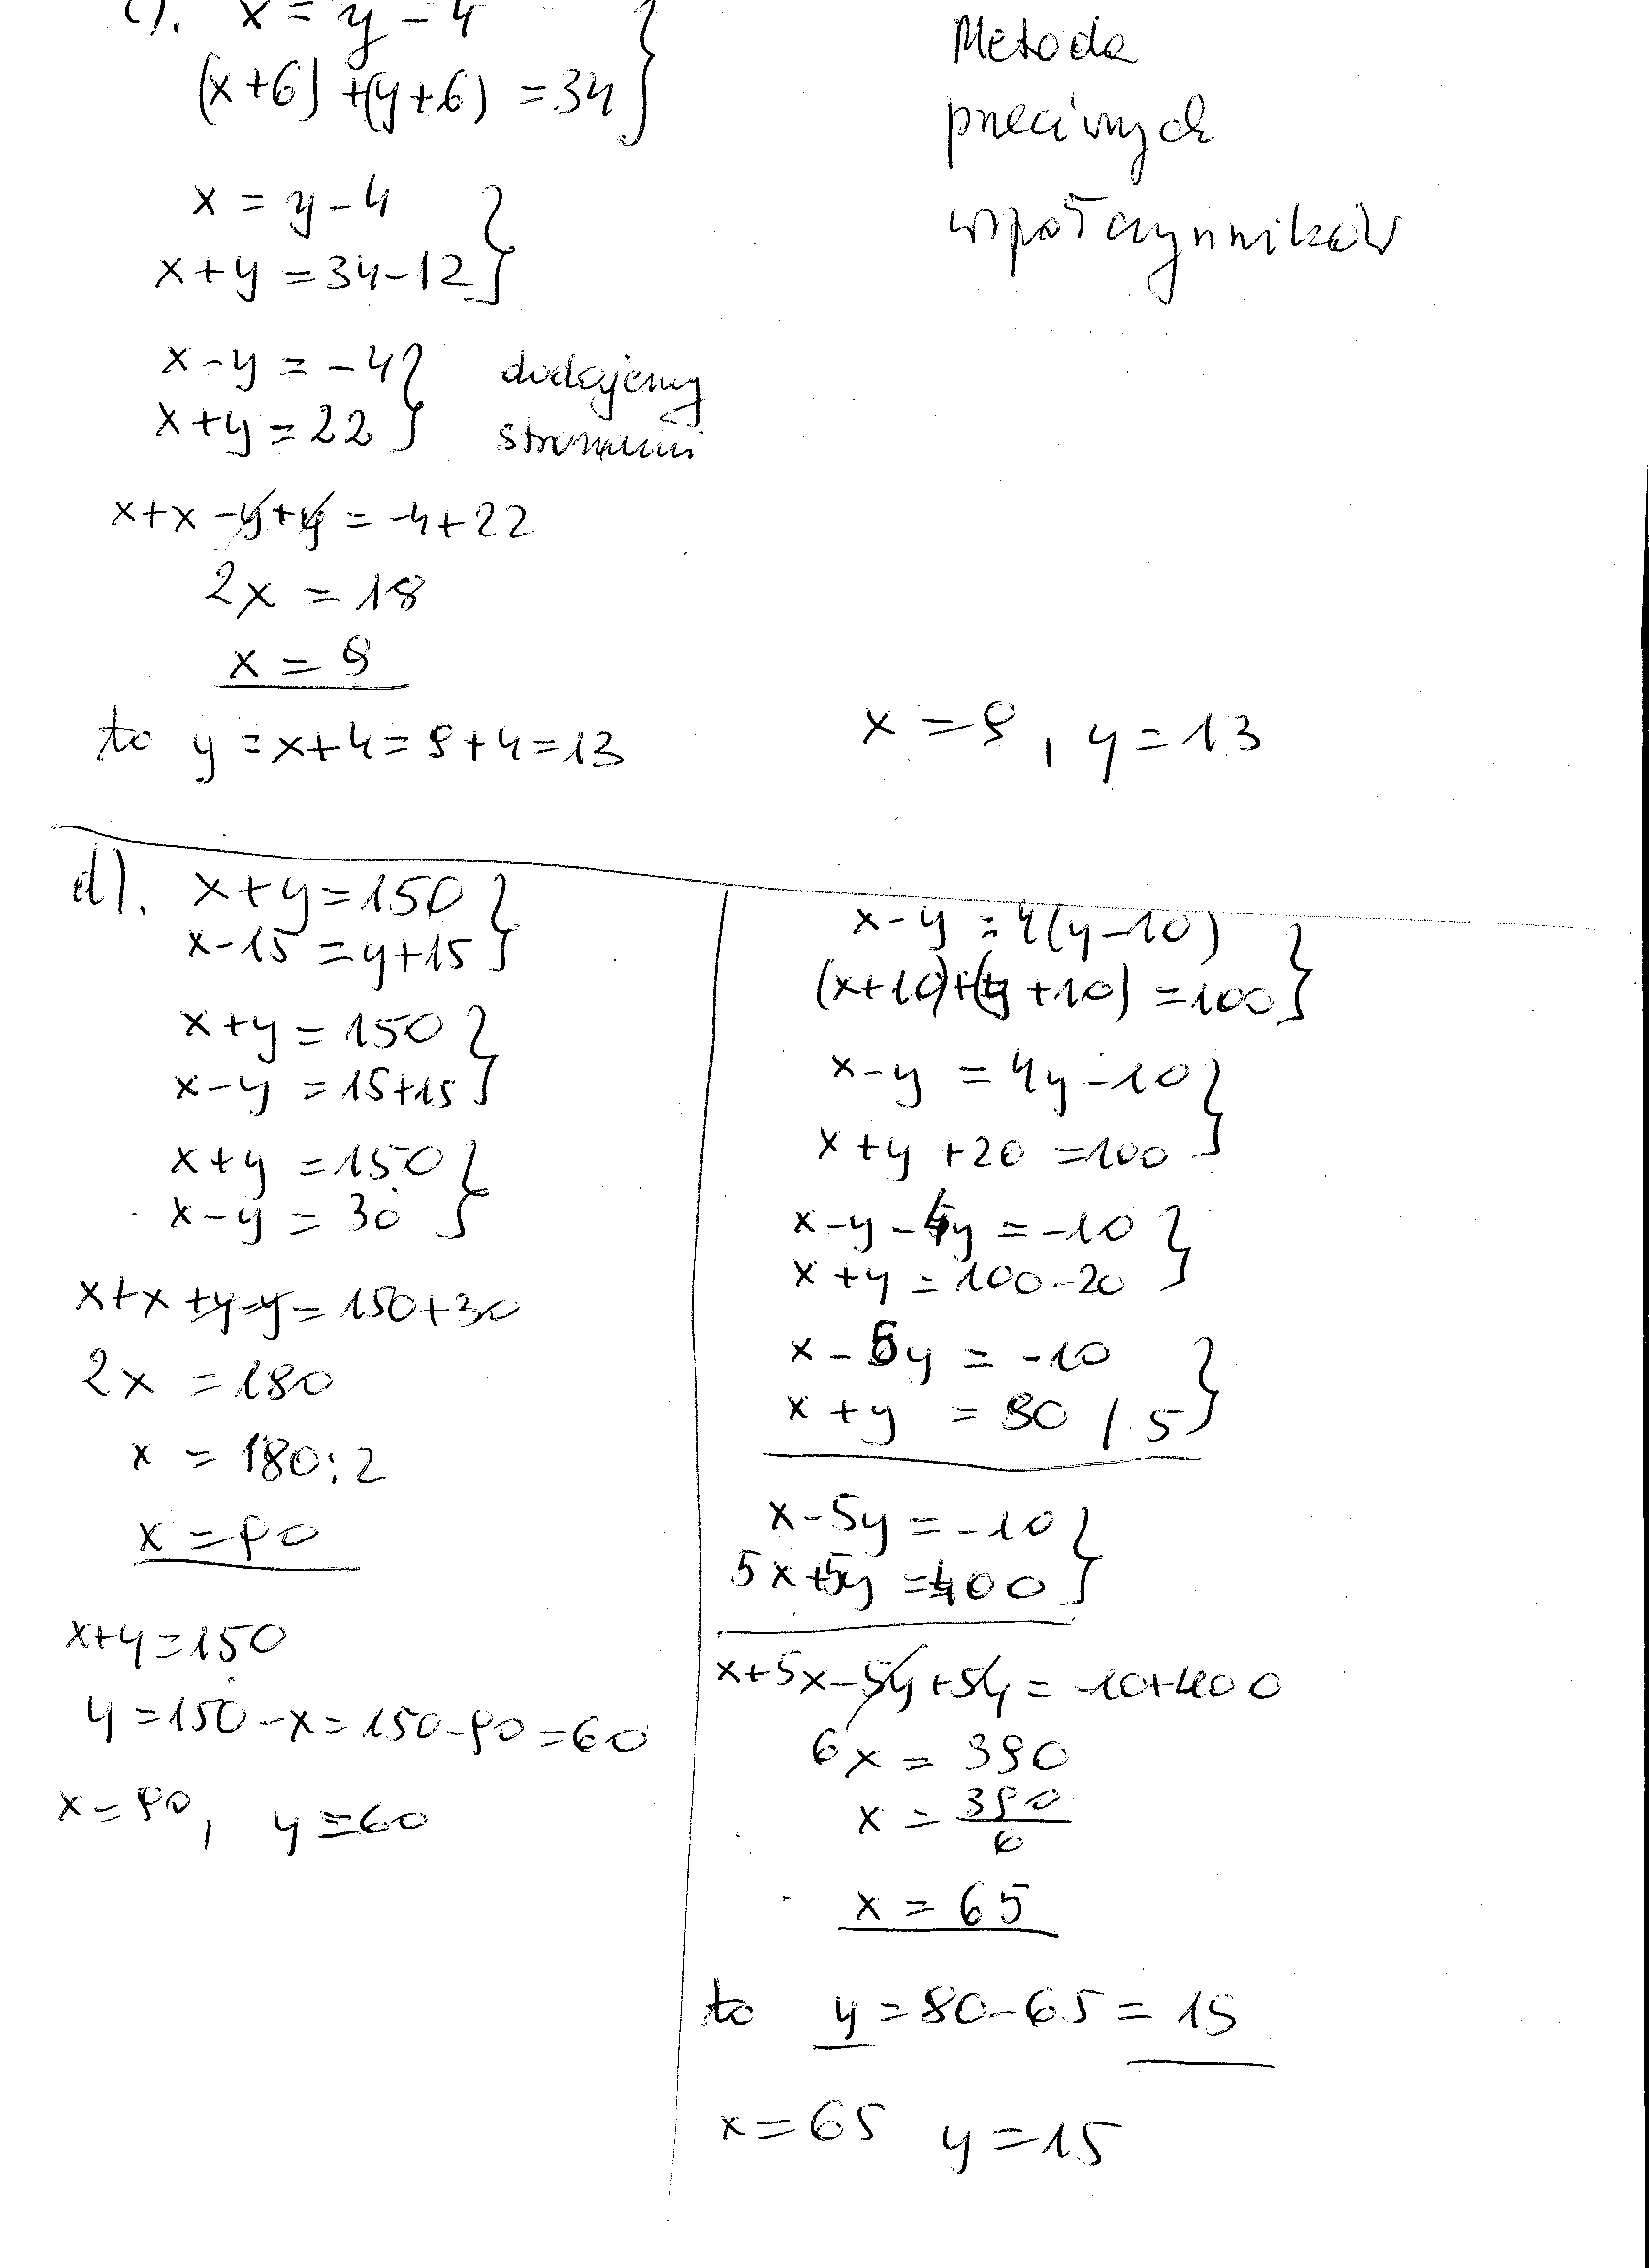 c). x = y - 4
(x+6) + (y+6) = 34
Metoda
przeciwnych
współczynników
x = y - 4
x + y = 34 - 12
x - y = -4
x + y = 22
dodajemy
stronami
x + x - y + y = -4 + 22
2x = 18
x = 9
to y = x + 4 = 9 + 4 = 13
x = 9, y = 13
d). x + y = 150
x - 15 = y + 15
x + y = 150
x - y = 15 + 15
x + y = 150
x - y = 30
x + x + y - y = 150 + 30
2x = 180
x = 180 : 2
x = 90
x + y = 150
y = 150 - x = 150 - 90 = 60
x = 90, y = 60
x - y = 4(y - 10)
(x+10) + (y+10) = 100
x - y = 4y - 10
x + y + 20 = 100
x - y - 4y = -10
x + y = 100 - 20
x - 5y = -10
x + y = 80 / · 5
x - 5y = -10
5x + 5y = 400
x + 5x - 5y + 5y = -10 + 400
6x = 390
x = 390/6
x = 65
to y = 80 - 65 = 15
x = 65 y = 15